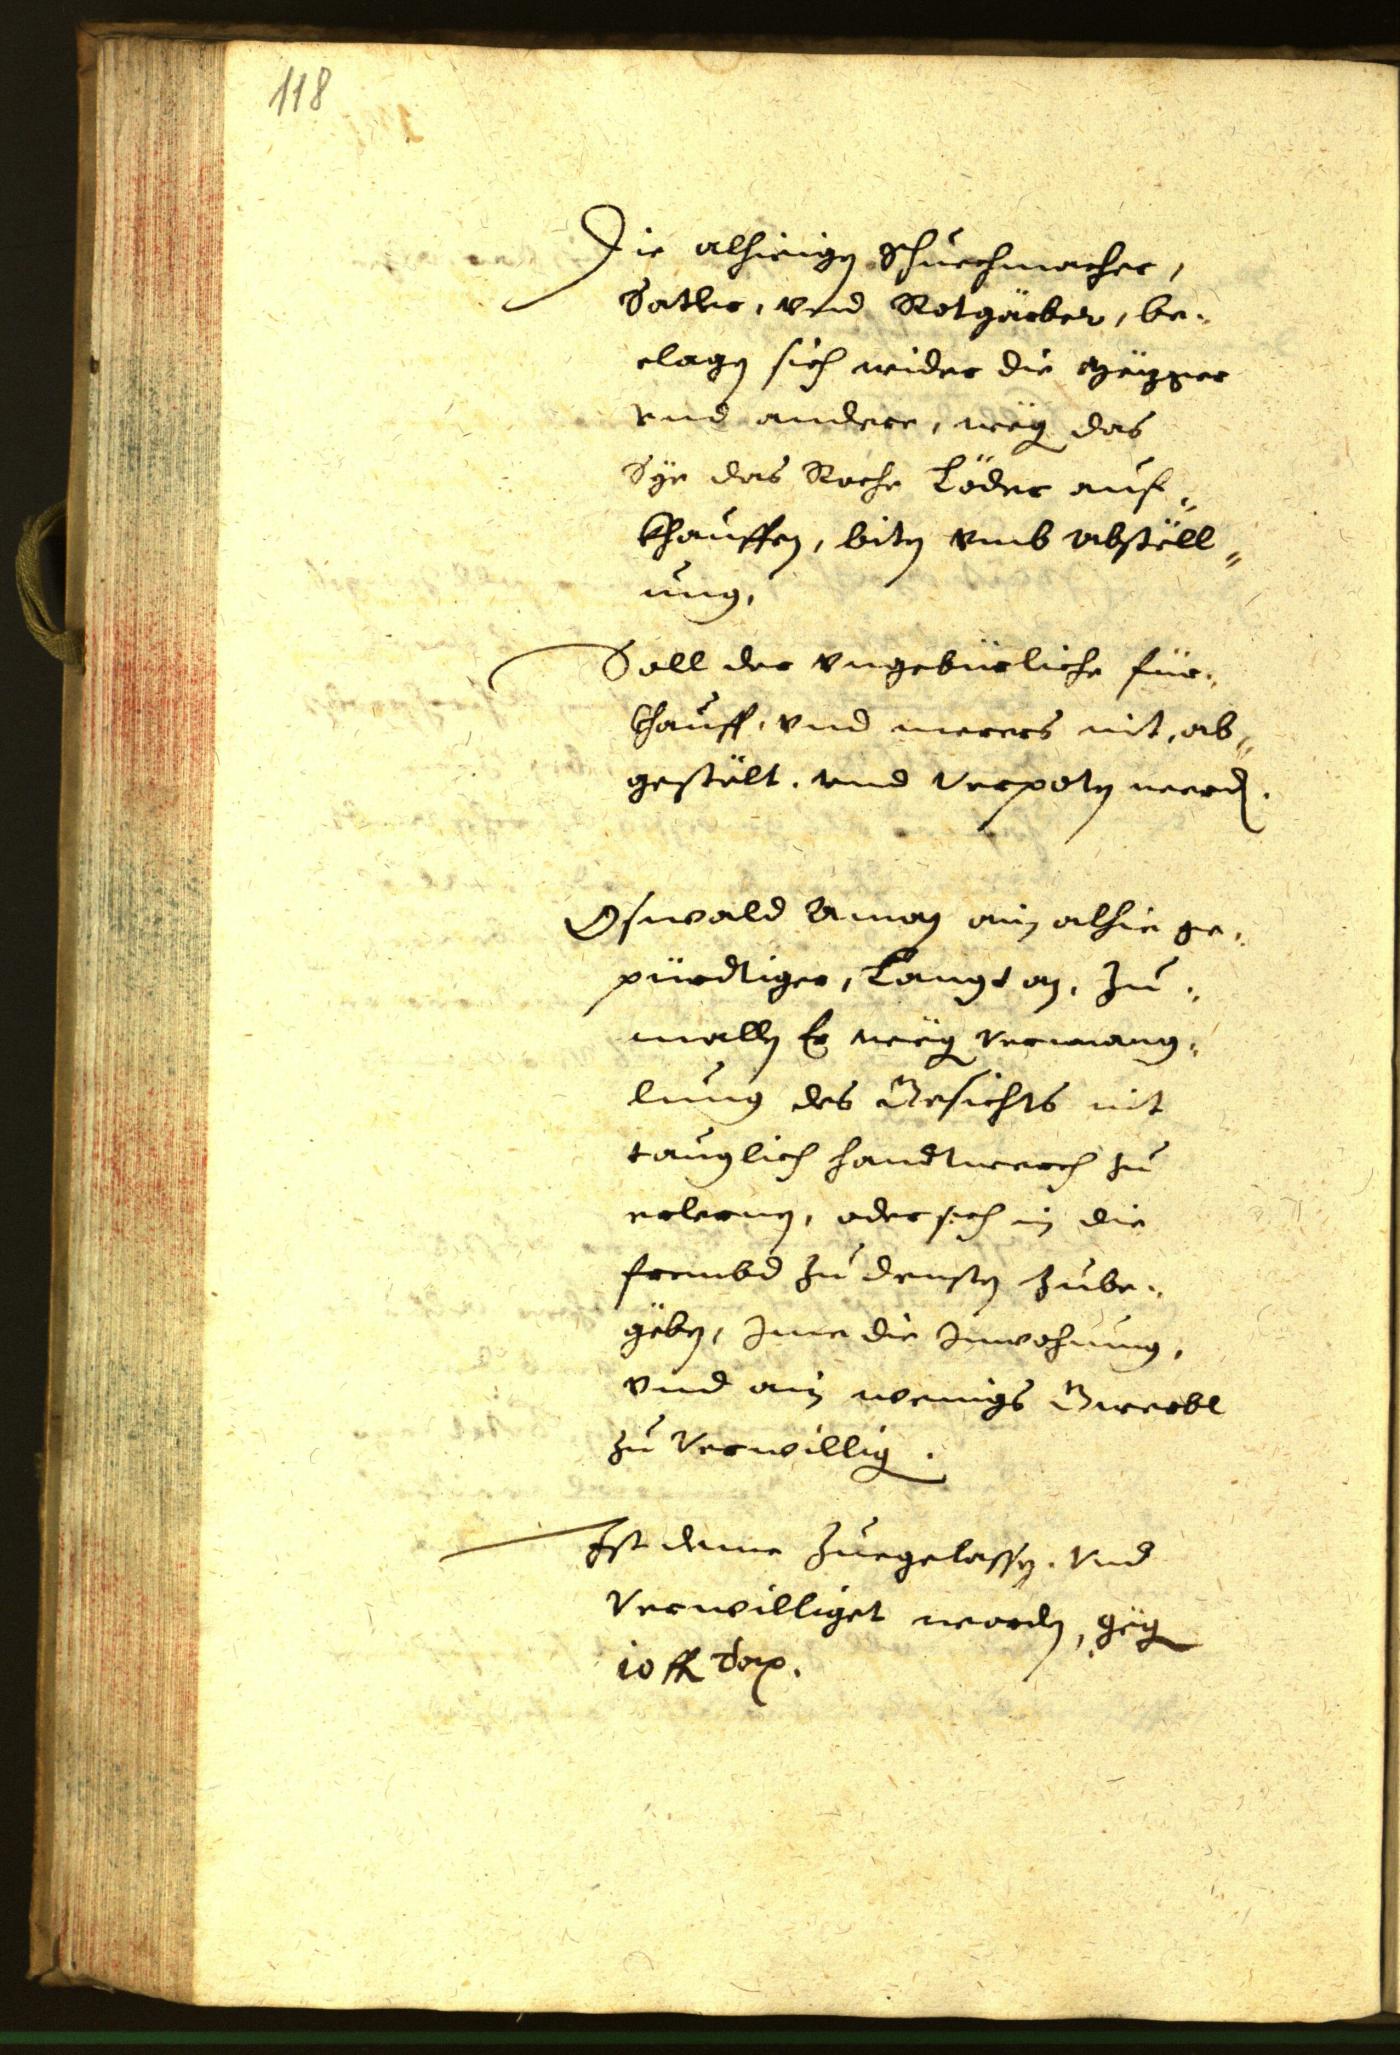 118
Die alhieigen Schuechmacher,
Satler, vnd Rotgärber, be-
clagen sich wider die
vnd andere, wegen das
Sÿe das Roche Löder auf-
khauffen, biten vmb abstell-
ung,
Soll der vngebürliche für-
khauff, vnd merers nit, ab-
gestölt. vnd verpoten werden.
Oswald Aman ain alhie ge-
pürdtiger, Langt an, zu-
mallen Er wegen vermang-
lung des Gesichts nit
tauglich handtwerch zu
erlernen, oder sich in die
frembd zu densten zube-
geben, Ime die Inwohnung,
vnd ain wenigs Gwerbl
zu verwilligen.
Ist deme zuegelassen. vnd
verwilliget worden, gegen
10 fl